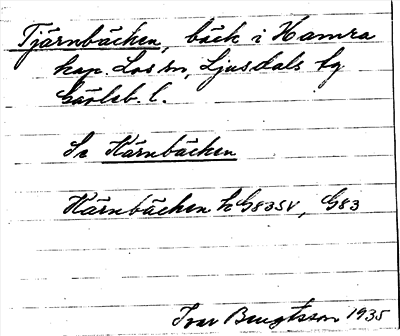 Tjärnbäcken, bäck i Hamra
kap. Los sn, Ljusdals tg
Gävleb. l.
Se Kärnbäcken
Kärnbäcken hG83SV, G83
Ivar Bengtsson 1935